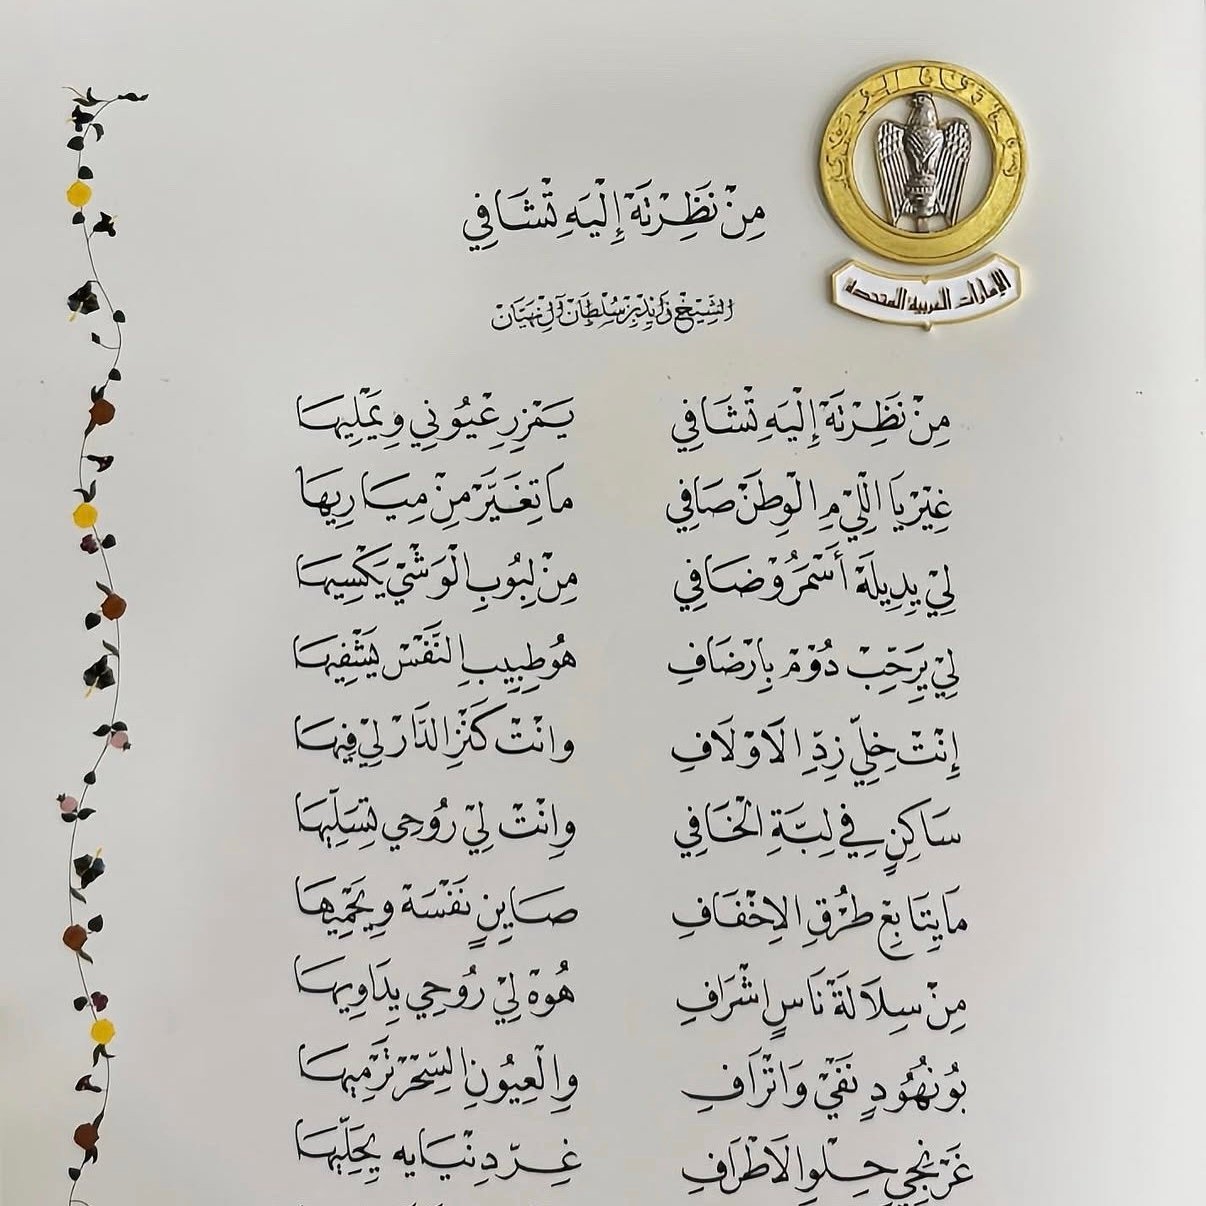 مِنْ نَظِرْتَهْ إِلْيَهِ تْشَافِي
الشِّيخْ زَايْد بِنْ سُلْطَان آل نهيَّان
الإمارات العربية المتحدة
مِنْ نَظِرْتَهْ إِلْيَهِ تْشَافِي يَمْزِرِ عْيُونِي وِيَمْلِيهَا
غِيْر يَا اللِّيْ مِ الْوِطَنْ صَافِي مَا تِغَيَّرْ مِنْ مِيَارِيهَا
لِيْ يِدِيلَهْ أَسْمَرُ وْضَافِي مِنْ لِبُوبِ الْوَشْيْ يَكْسِيهَا
لِيْ يِرَحِّبْ دُوْمْ بِارْضَافِ هُو طِبِيبِ النَّفْسْ يَشْفِيهَا
إِنْتْ خِلِّي زِدِّ الَاوْلَافِ وانْتْ كَنْزِ الدَّارْ لِيْ فِيهَا
سَاكِنٍ فِي لِبَّةِ الْخَافِي وِانْتْ لِيْ رُوْحِي تِسَلِّيهَا
مَا يِتَابِعْ طُرْقِ الِاخْفَافِ صَايِنٍ نَفْسَهْ وِيَحْمِيهَا
مِنْ سِلَالَةْ نَاسٍ اشْرَافِ هُوهْ لِيْ رُوْحِي يِدَاوِيهَا
بُو نُهُودٍ نَفْيْ وَاتْرَافِ وِالْعِيُونِ السِّحْرْ تَرْمِيهَا
غَرْبَجِي حِلْوِ الَاطْرَافِ غِرّ دِنْيَايه يِحَلِّيهَا